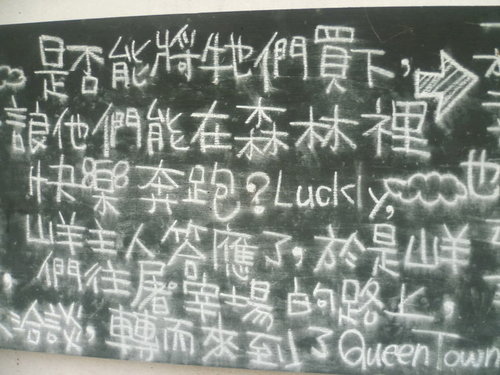 是否能將牠們買下,
讓他們能在森林裡
快樂奔跑?Luckly, 也
山羊主人答應了,於是山羊
們往屠宰場的路上,
洽談,轉而來到了QueenTown